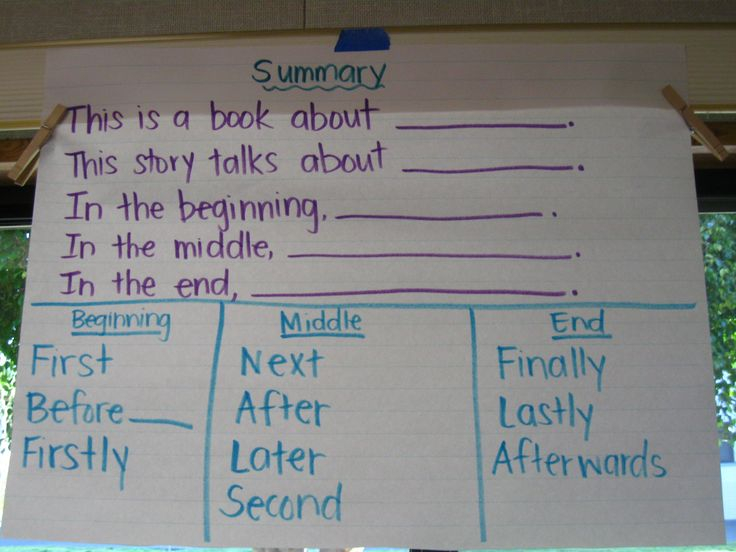 Summary
This is a book about ____________.
This story talks about ____________.
In the beginning, ____________.
In the middle, ____________.
In the end, ____________.
Beginning
First
Before ____
Firstly
Middle
Next
After
Later
Second
End
Finally
Lastly
Afterwards